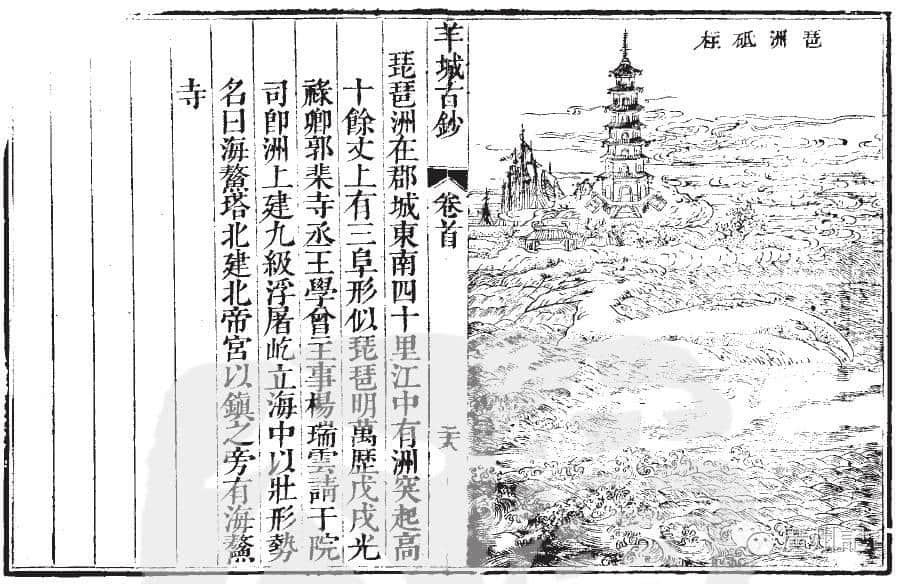 琶洲砥柱
羊城古鈔 卷首
琵琶洲在郡城東南四十里江中有洲突起高
十餘丈上有三阜形似琵琶明萬歷戊戌光
祿卿郭棐寺丞王學曾主事楊瑞雲請于院
司卽洲上建九級浮屠屹立海中以壯形勢
名曰海鰲塔北建北帝宮以鎮之旁有海鰲
寺